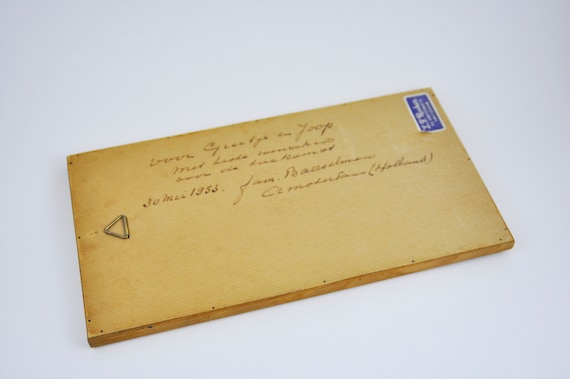 voor Greetje en Joop
Met beste wensen
voor de toekomst
30 Mei 1955. fam. Baesselman
Amsterdam (Holland)